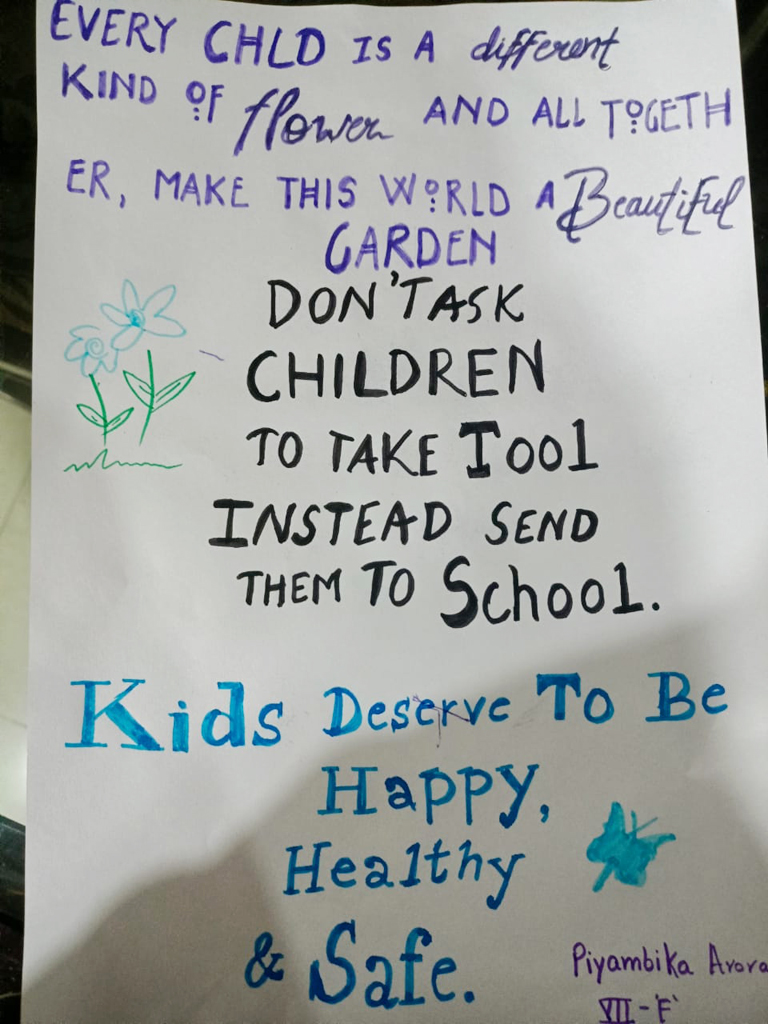 EVERY CHLD IS A different
KIND OF flower AND ALL TOGETH
ER, MAKE THIS WORLD A Beautiful
GARDEN
DON'T ASK
CHILDREN
TO TAKE Tool
INSTEAD SEND
THEM TO School.
Kids Deserve To Be
Happy,
Healthy
& Safe.
Piyambika Arora
VII-'F'